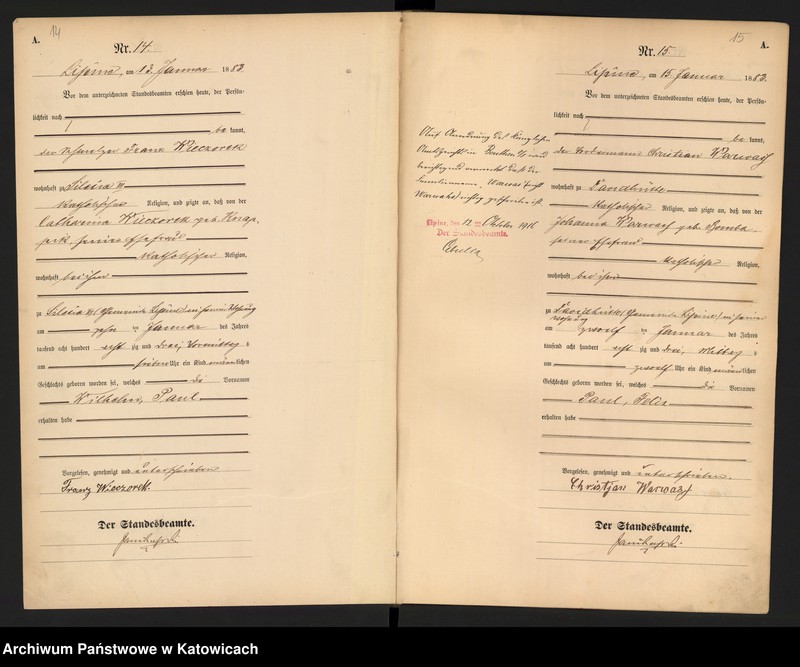 14
A.
Nr. 14.
Lipine, am 13. Januar 1883.
Vor dem unterzeichneten Standesbeamten erschien heute, der Persön-
lichkeit nach
be kannt,
der Franz Wieczorek
wohnhaft zu Silesia
katholischer Religion, und zeigte an, daß von der
Catharina Wieczorek geb. Knap-
seiner Ehefrau
katholischer Religion,
wohnhaft bei ihm
zu Silesia (Gemeinde Lipine) in seiner Wohnung
am zehn ten Januar des Jahres
tausend acht hundert acht zig und drei, Vormittag s
um sieben Uhr ein Kind männlichen
Geschlechts geboren worden sei, welches die Vornamen
Wilhelm, Paul
erhalten habe
Vorgelesen, genehmigt und unterschrieben
Franz Wieczorek.
Der Standesbeamte.
15
A.
Nr. 15.
Lipine, am 15. Januar 1883.
Vor dem unterzeichneten Standesbeamten erschien heute, der Persön-
lichkeit nach
be kannt,
der Christian
wohnhaft zu
katholischer Religion, und zeigte an, daß von der
Johanna geb. Bomba
seiner Ehefrau
katholischer Religion,
wohnhaft bei ihm
zu (Gemeinde Lipine) in seiner
Wohnung
am zwoelf ten Januar des Jahres
tausend acht hundert acht zig und drei, Mittag s
um zwoelf Uhr ein Kind männlichen
Geschlechts geboren worden sei, welches die Vornamen
Paul, Felix
erhalten habe
Vorgelesen, genehmigt und unterschrieben.
Christjan
Der Standesbeamte.
Auf Anordnung des Königlichen
Amtsgerichts in Beuthen O/S wird
berichtigend vermerkt, daß der
Familienname
Lipine, den 12 ten Oktober 1916
Der Standesbeamte.
Archiwum Państwowe w Katowicach